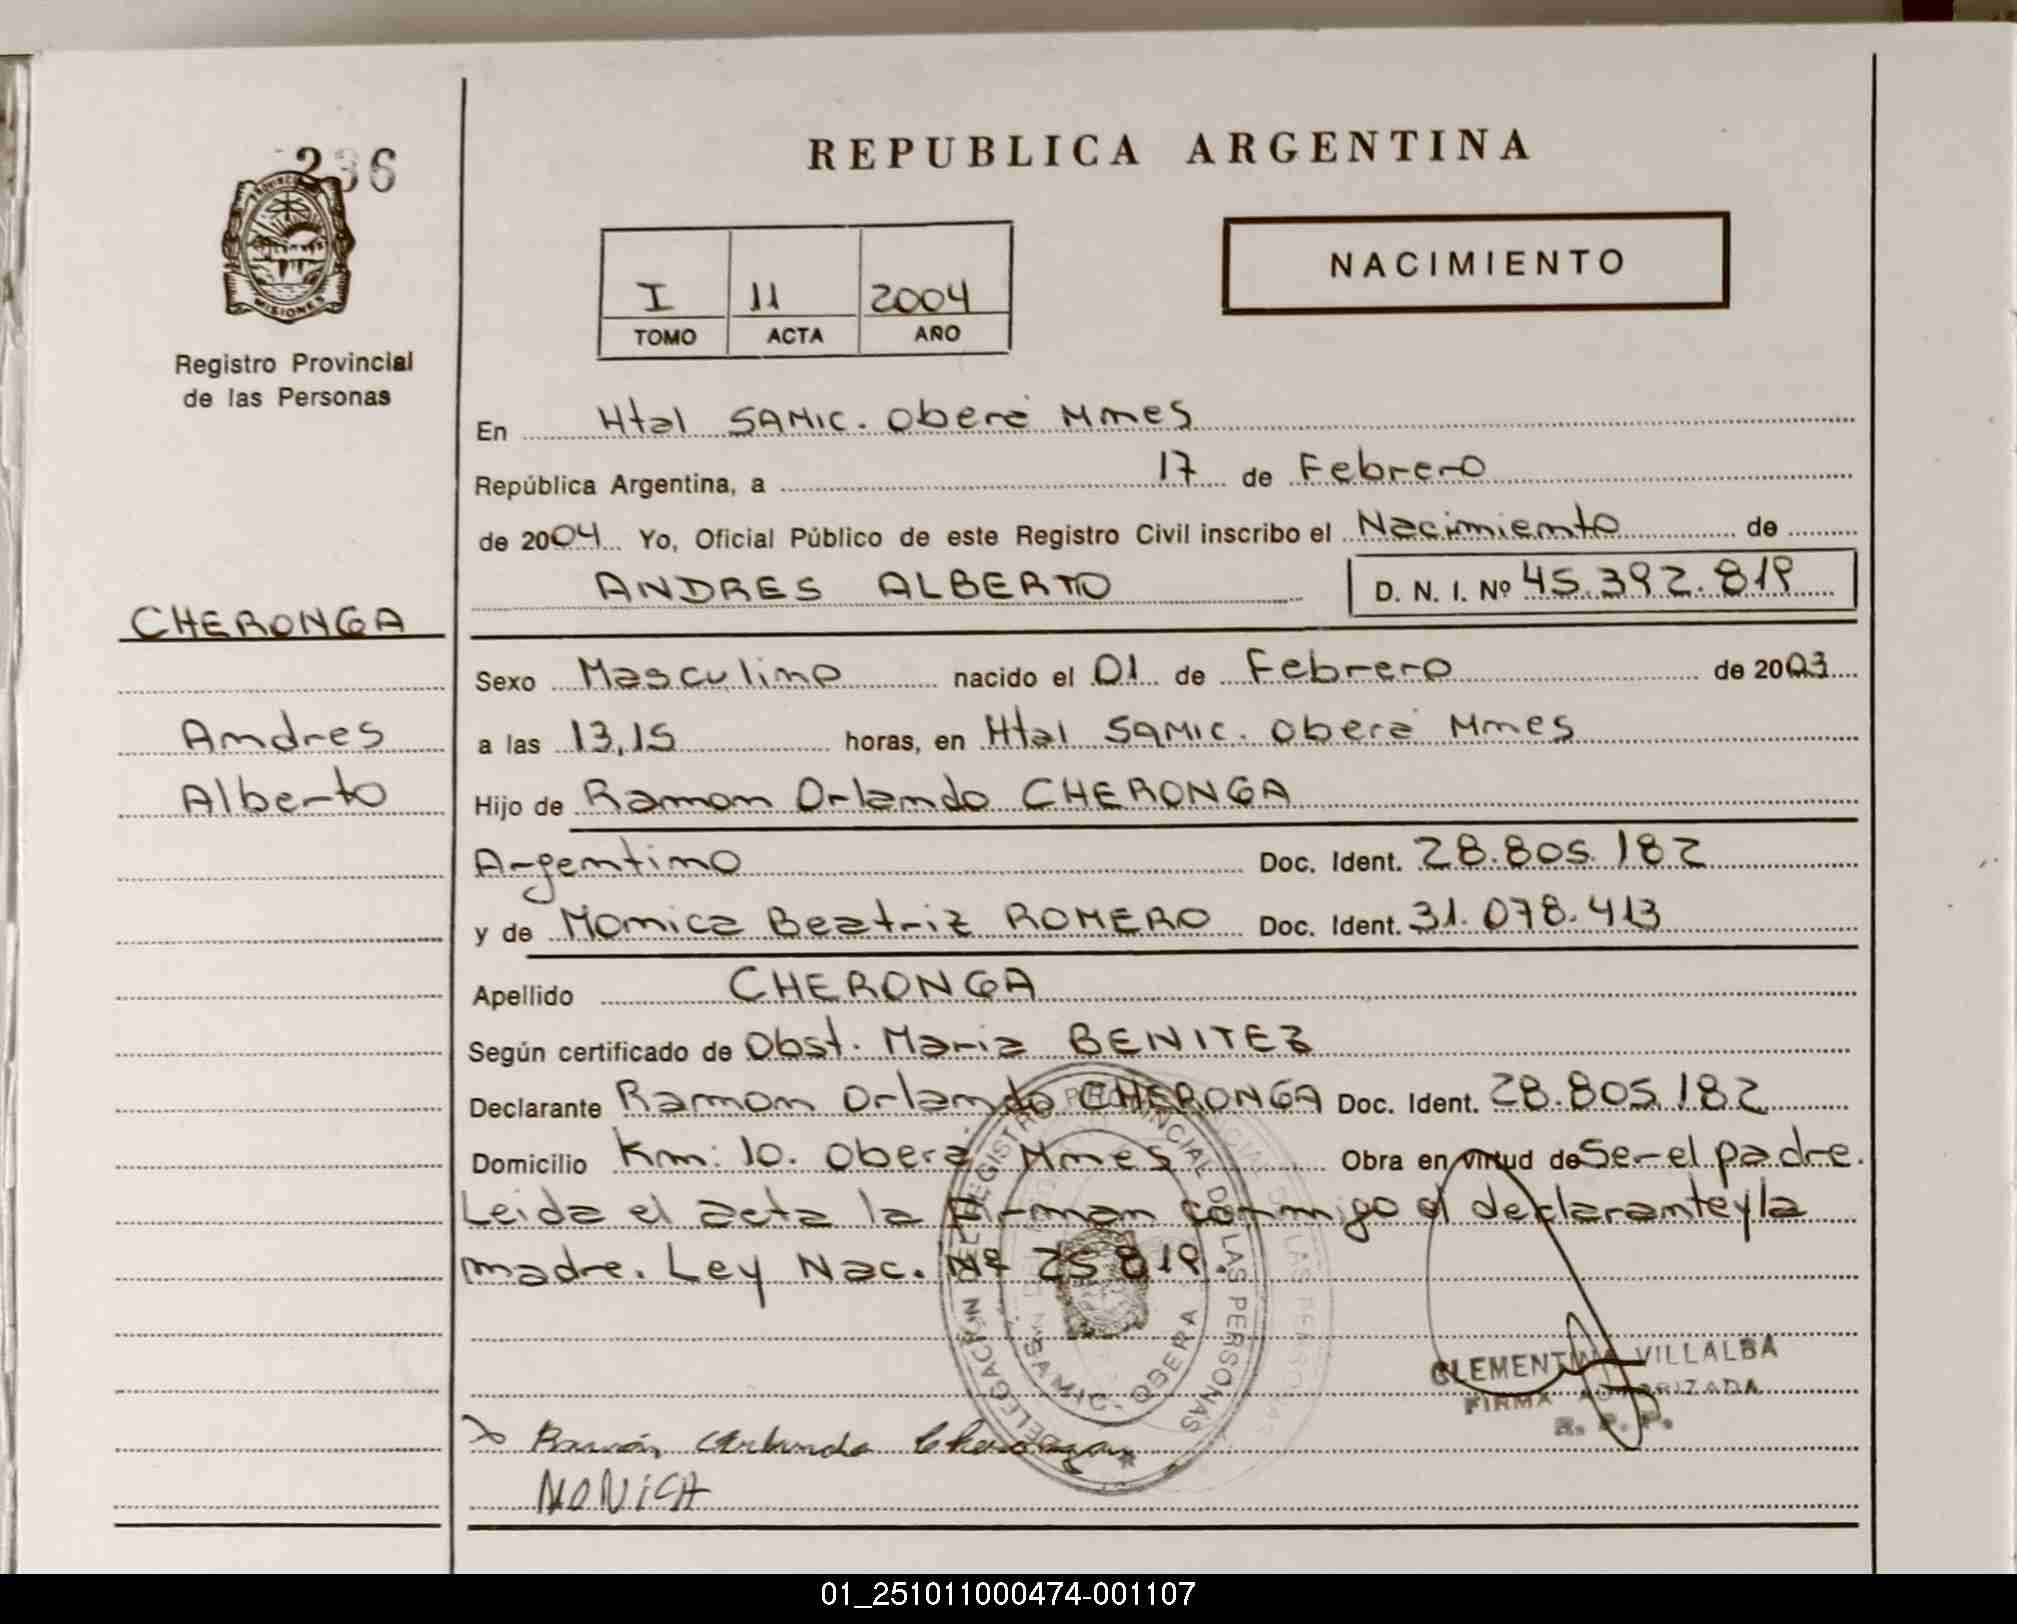 236
PROVINCIA
MISIONES
Registro Provincial
de las Personas
REPUBLICA ARGENTINA
I 11 2004
TOMO ACTA AÑO
NACIMIENTO
En Htal SAMIC. Oberá Mnes
República Argentina, a 17 de Febrero
de 2004 Yo, Oficial Público de este Registro Civil inscribo el Nacimiento de
ANDRES ALBERTO D. N. I. Nº 45.392.819
CHERONGA
Andres
Alberto
Sexo Masculino nacido el 01 de Febrero de 2003
a las 13,15 horas, en Htal SAMIC. Oberá Mnes
Hijo de Ramon Orlando CHERONGA
Argentino Doc. Ident. 28.805.182
y de Monica Beatriz ROMERO Doc. Ident. 31.078.413
Apellido CHERONGA
Según certificado de Obst. Maria BENITEZ
Declarante Ramon Orlando CHERONGA Doc. Ident. 28.805.182
Domicilio Km: 10. Oberá Mnes Obra en virtud de Ser el padre.
Leida el acta la firman conmigo el declarante y la
madre. Ley Nac. Nº 25819.
DELEGACIÓN DEL REGISTRO PROVINCIAL DE LAS PERSONAS
SAMIC. OBERA
CLEMENTINA VILLALBA
FIRMA AUTORIZADA
R. P. P.
Ramón Orlando Cheronga
MONICA
01_251011000474-001107